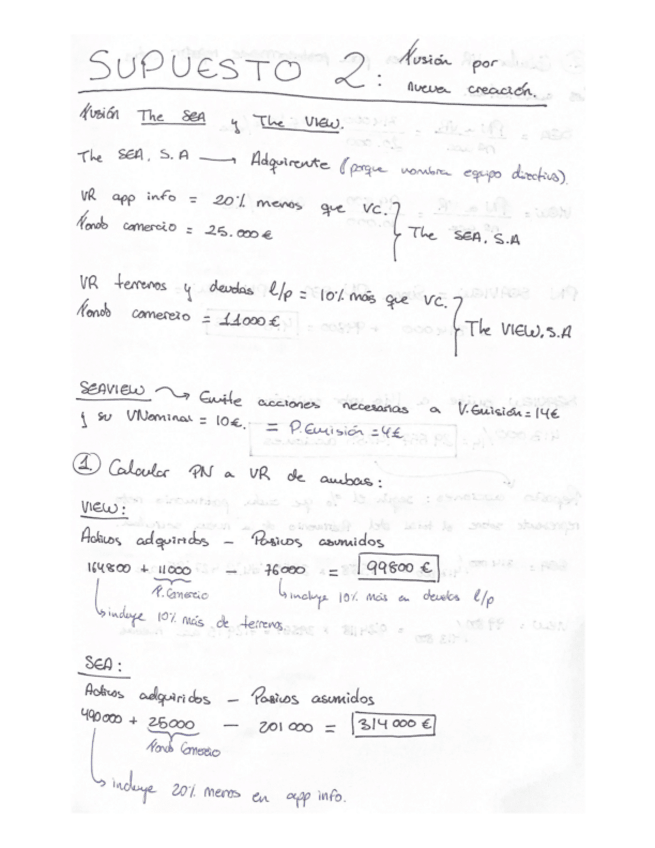 SUPUESTO 2: fusión por
nueva creación.
fusión The SEA y The VIEW.
The SEA, S.A → Adquirente (porque nombra equipo directivo).
VR app info = 20% menos que VC.
fondo comercio = 25.000€
The SEA, S.A
VR terrenos y deudas l/p = 10% más que VC.
fondo comercio = 11000€
The VIEW, S.A
SEAVIEW → Emite acciones necesarias a V.Emisión = 14€
y su VNominal = 10€. = P.Emisión = 4€
1. Calcular PN a VR de ambas:
VIEW:
Activos adquiridos - Pasivos asumidos
164800 + 11000 - 76000 = 99800 €
F.Comercio
incluye 10% más en deudas l/p
incluye 10% más de terrenos.
SEA:
Activos adquiridos - Pasivos asumidos
490000 + 25000 - 201000 = 314000 €
fondo Comercio
incluye 20% menos en app info.